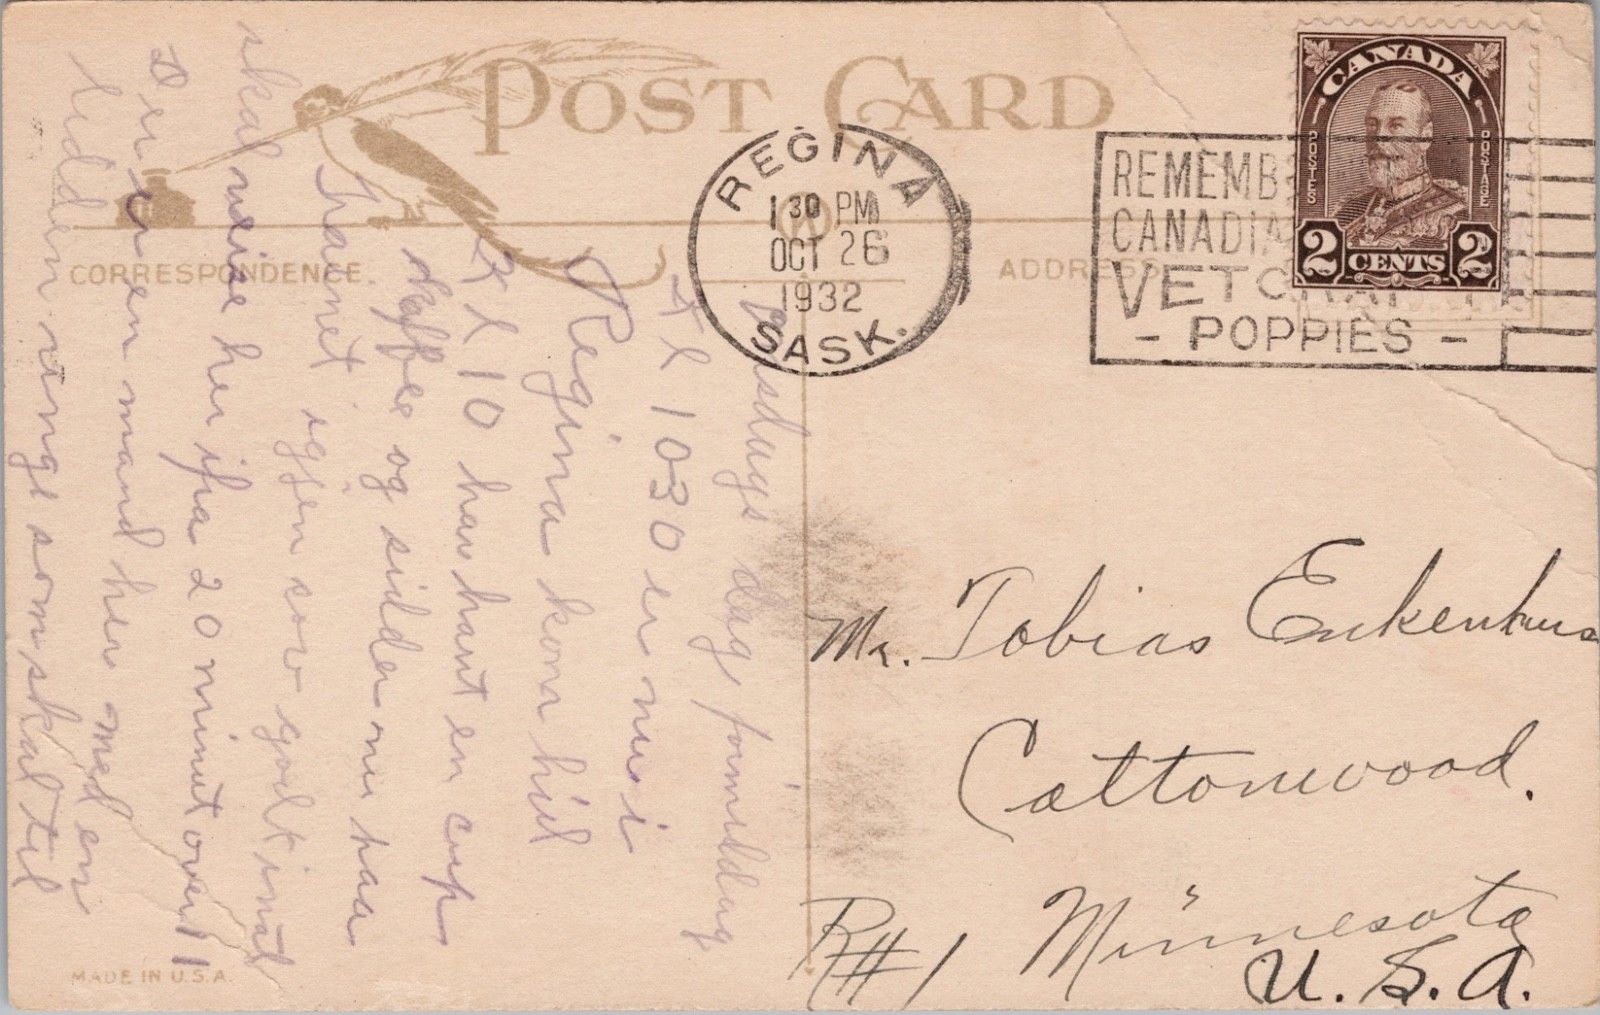 POST CARD
CORRESPONDENCE
ADDRESS
REGINA
1 30 PM
OCT 26
1932
SASK.
REMEMB
CANADIA
VET
- POPPIES -
CANADA
POSTES
POSTAGE
2 CENTS 2
onsdags dag formiddag
Kl 1030 er nu i
Regina kom hid
Kl 10 har hant en cup
kaffee og sidder nu paa
Trainet igjen sov godt inat
skal reise her ifra 20 minut over 11
Der er en mand her med en
liden som skal til
Mr. Tobias Enkenhus
Cottonwood.
Minnesota
R#1
U.S.A.
MADE IN U.S.A.